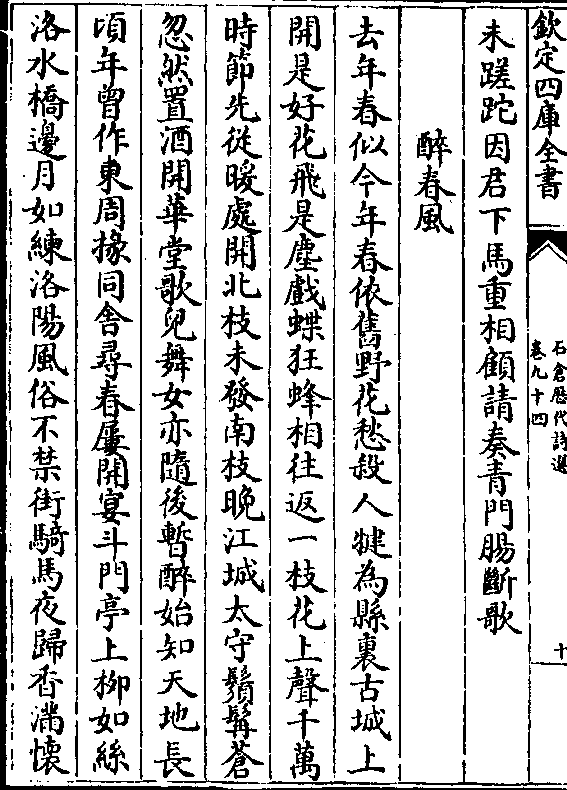 欽定四庫全書
石倉歷代詩選
卷九十四
十
未蹉跎因君下馬重相顧請奏青門腸斷歌
醉春風
去年春似今年春依舊野花愁殺人犍為縣裏古城上
開是好花飛是塵戲蝶狂蜂相往返一枝花上聲千萬
時節先從暖處開北枝未發南枝晚江城太守鬚髯蒼
忽然置酒開華堂歌兒舞女亦隨後暫醉始知天地長
頃年曾作東周掾同舍尋春屢開宴斗門亭上柳如絲
洛水橋邊月如練洛陽風俗不禁街騎馬夜歸香滿懷